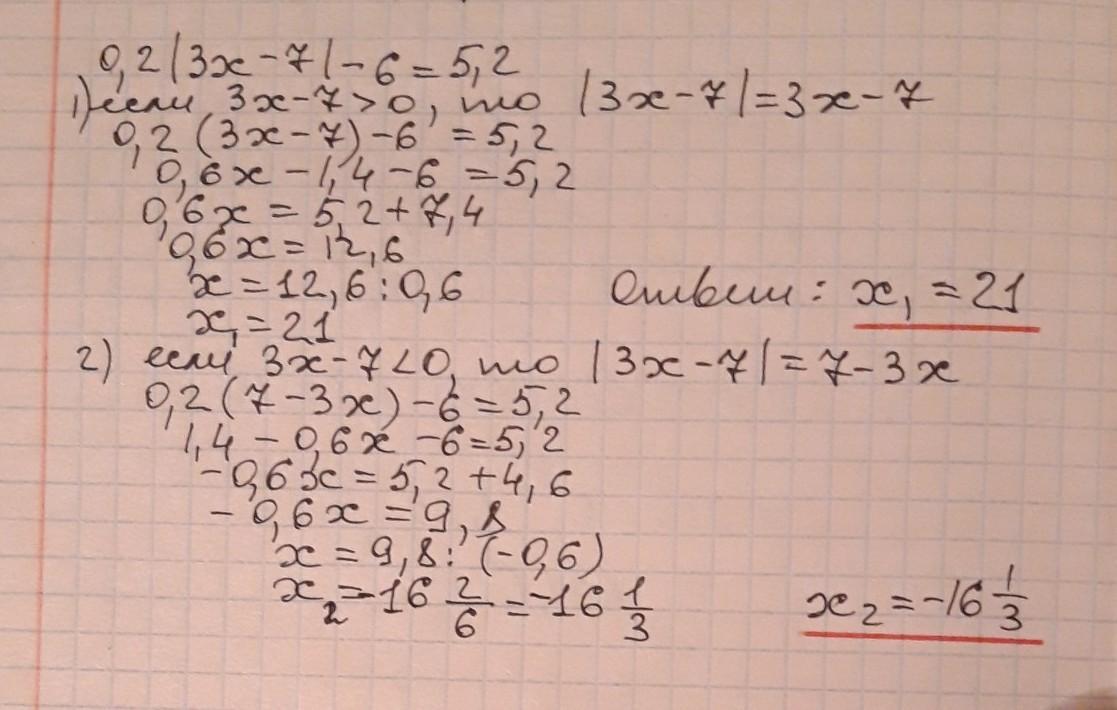 0,2|3x-7|-6=5,2
1) если 3x-7>0, то |3x-7|=3x-7
0,2(3x-7)-6=5,2
0,6x-1,4-6=5,2
0,6x=5,2+7,4
0,6x=12,6
x=12,6:0,6
x₁=21
Ответ: x₁=21
2) если 3x-7<0, то |3x-7|=7-3x
0,2(7-3x)-6=5,2
1,4-0,6x-6=5,2
-0,6x=5,2+4,6
-0,6x=9,8
x=9,8:(-0,6)
x₂=-16 2/6=-16 1/3
x₂=-16 1/3